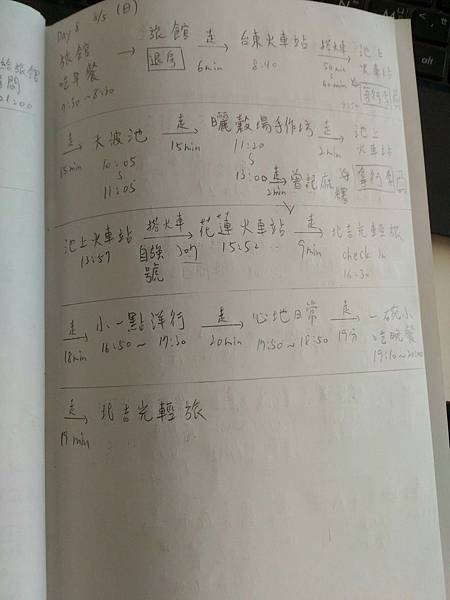 給旅館
21:00
Day 8 6/5 (日)
旅館 → 旅館 走 台東火車站 搭火車 池上
吃早餐 退房 6min 8:40 火車站
7:30 ~ 8:30
走 大波池 走 曬穀場手作坊 走 池上
15min 10:05 15min 11:20 2min 火車站
11:05 13:00 走
2min
池上火車站 搭火車 花蓮火車站 走 北吉光輕旅
13:57 自強 307 15:52 9min check in
號 16:30
走 小一點洋行 走 心地日常 走 一碗小
18min 16:50 ~ 17:30 20min 17:50 ~ 18:50 19分 吃晚餐
19:10 ~ 20:00
走 北吉光輕旅
19 min
alt